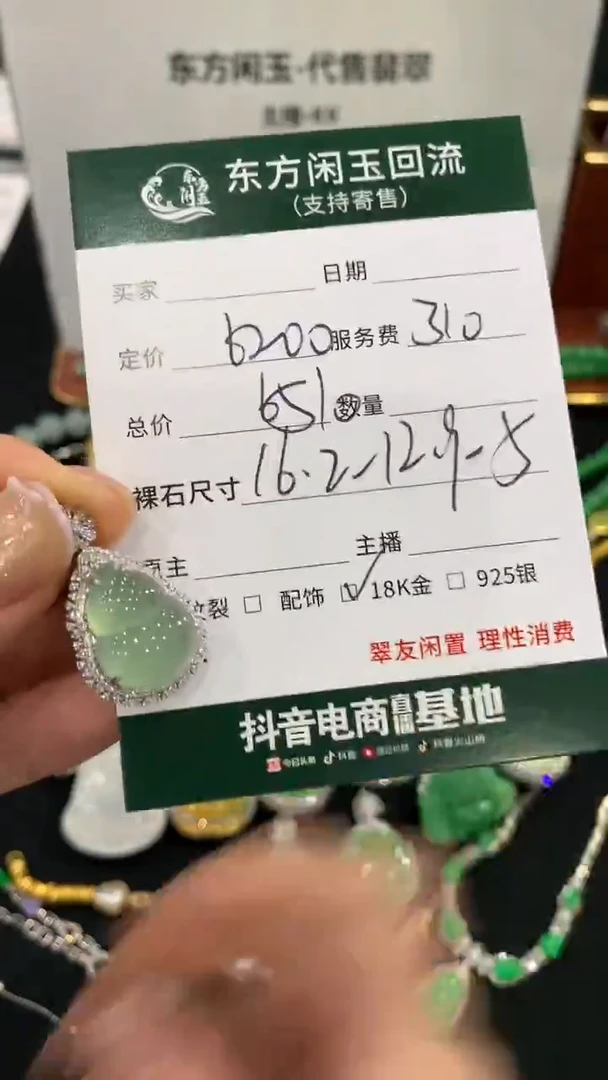 东方闲玉·代售翡翠
东方闲玉
东方闲玉回流
(支持寄售)
买家 日期
定价 6200 服务费 310
总价 651 数量
裸石尺寸 16.2-12.9-5
主 主播
裂 □ 配饰 ☑ 18K金 □ 925银
翠友闲置 理性消费
抖音电商直播基地
今日头条 抖音 抖音火山版